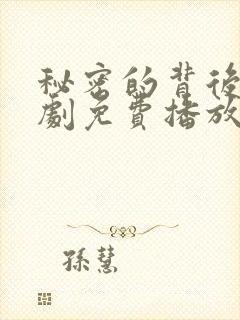 秘密的背後
劇免費播放
孫慧